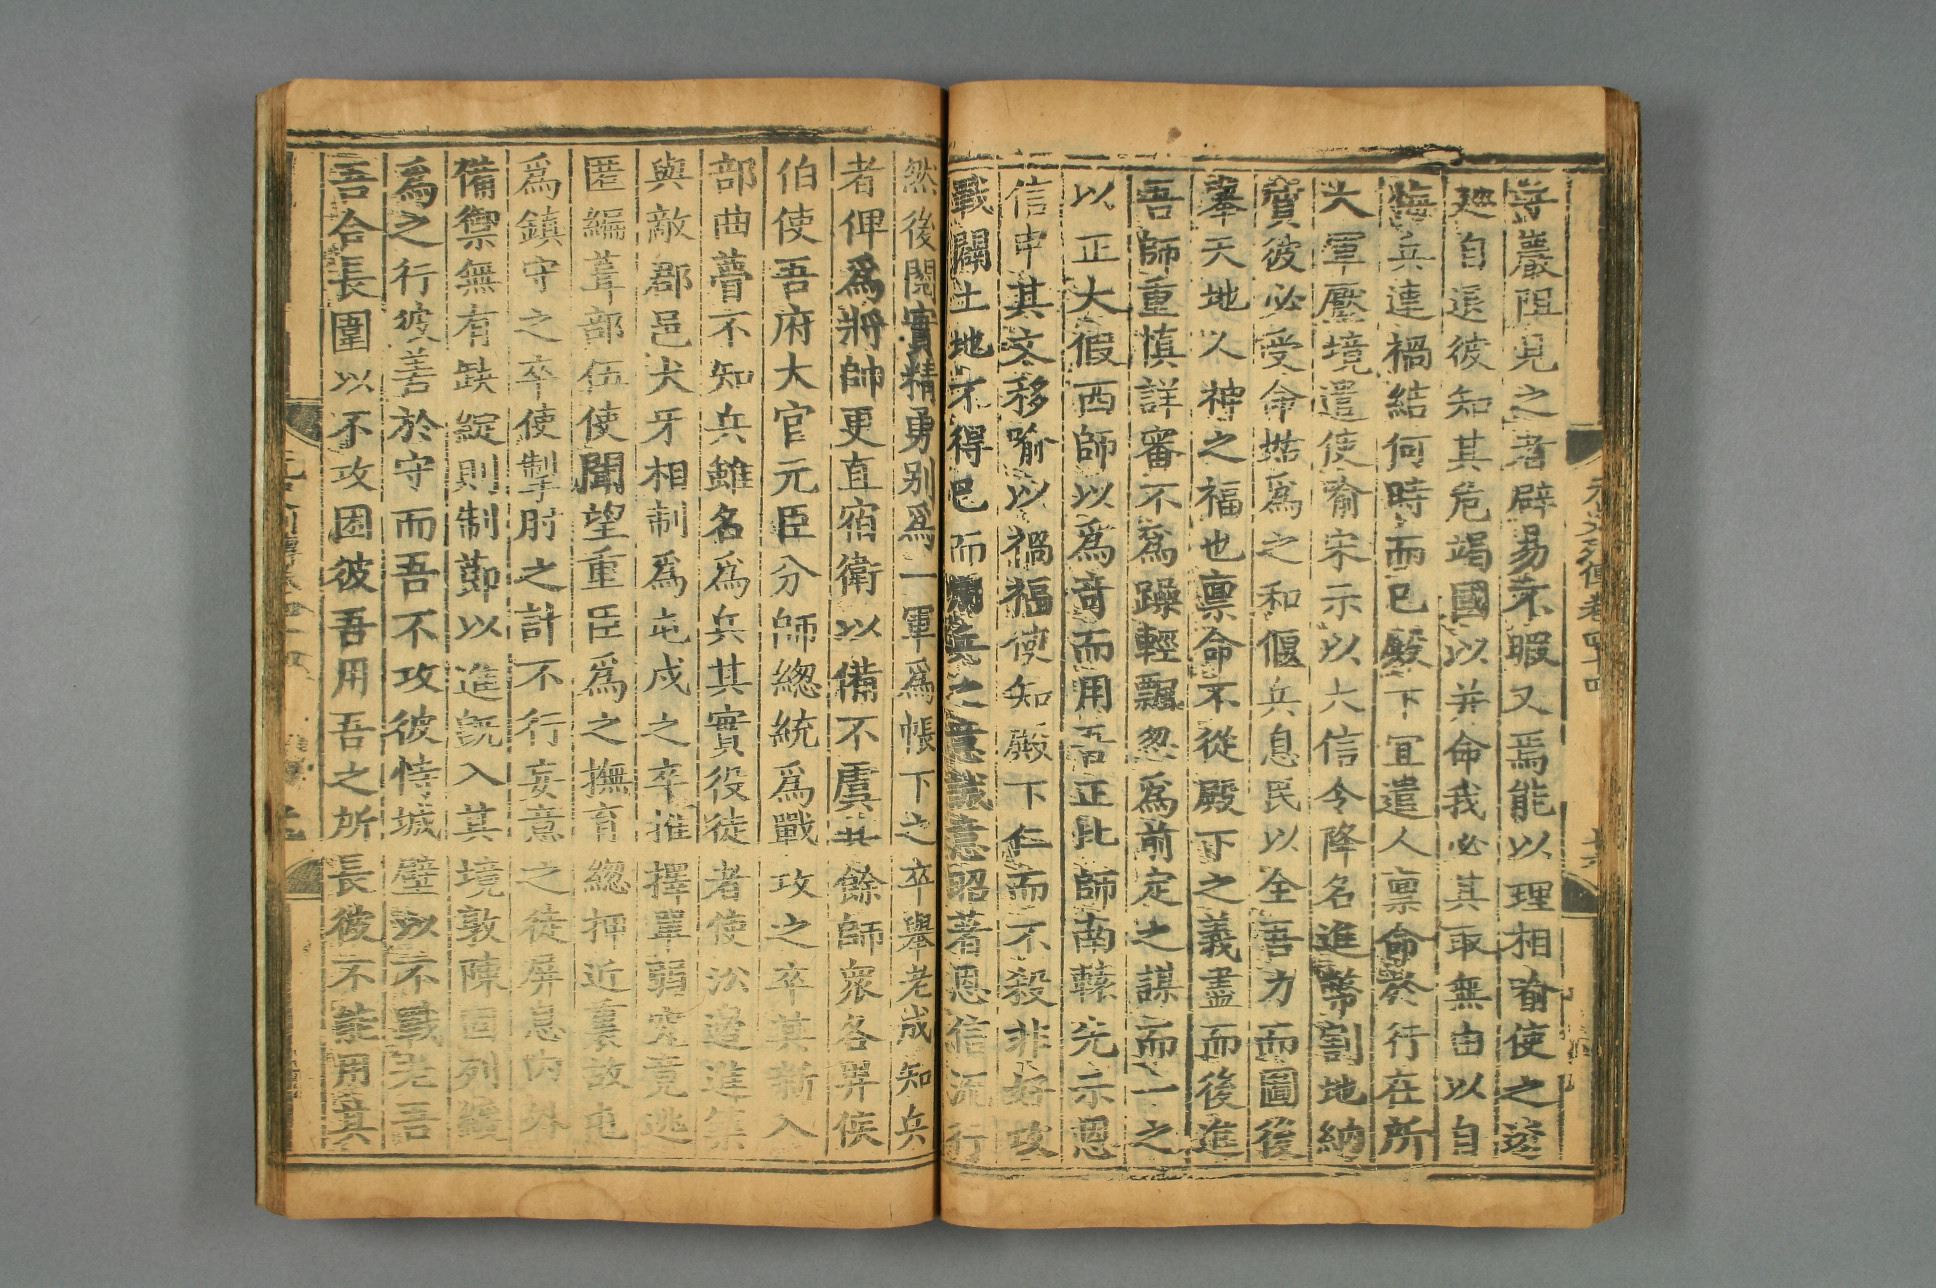 守嚴阻見之者辟易不暇又焉能以理相喻使之逡
廵自退彼知其危竭國以并命我必其取無由以自
悔兵連禍結何時而已殿下宜遣人稟命於行在所
大軍壓境遣使喻宋示以大信令降名進幣割地納
質彼必受命姑為之和偃兵息民以全吾力而圖後
舉天地人神之福也稟命不從殿下之義盡而後進
吾師重慎詳審不為躁輕飄忽為前定之謀而一之
以正大假西師以為竒而用吾正比師南轅先示恩
信申其文移喻以禍福使知殿下仁而不殺非好攻
戰闢土地不得已而用兵之意誠意昭著恩信流行
然後閱實精勇别為一軍為帳下之卒舉老成知兵
者俾為將帥更直宿衛以備不虞其餘師衆各畀侯
伯使吾府大官元臣分師緫統為戰攻之卒其新入
部曲瞢不知兵雖名為兵其實役徒者使沿邉進築
與敵郡邑犬牙相制為屯戍之卒推擇單弱究竟逃
匿編葺部伍使聞望重臣為之撫育緫押近裏故屯
為鎮守之卒使掣肘之計不行妄意之徒屏息内外
備禦無有缺綻則制節以進既入其境敦陳固列緩
為之行彼善於守而吾不攻彼恃城壁以不戰老吾
吾合長圍以不攻困彼吾用吾之所長彼不能用其